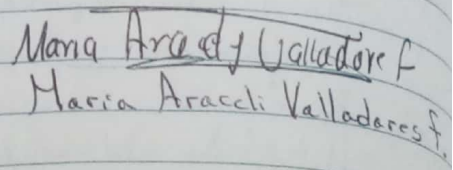 Maria Aracely Valladare f
Maria Araceli Valladares f.